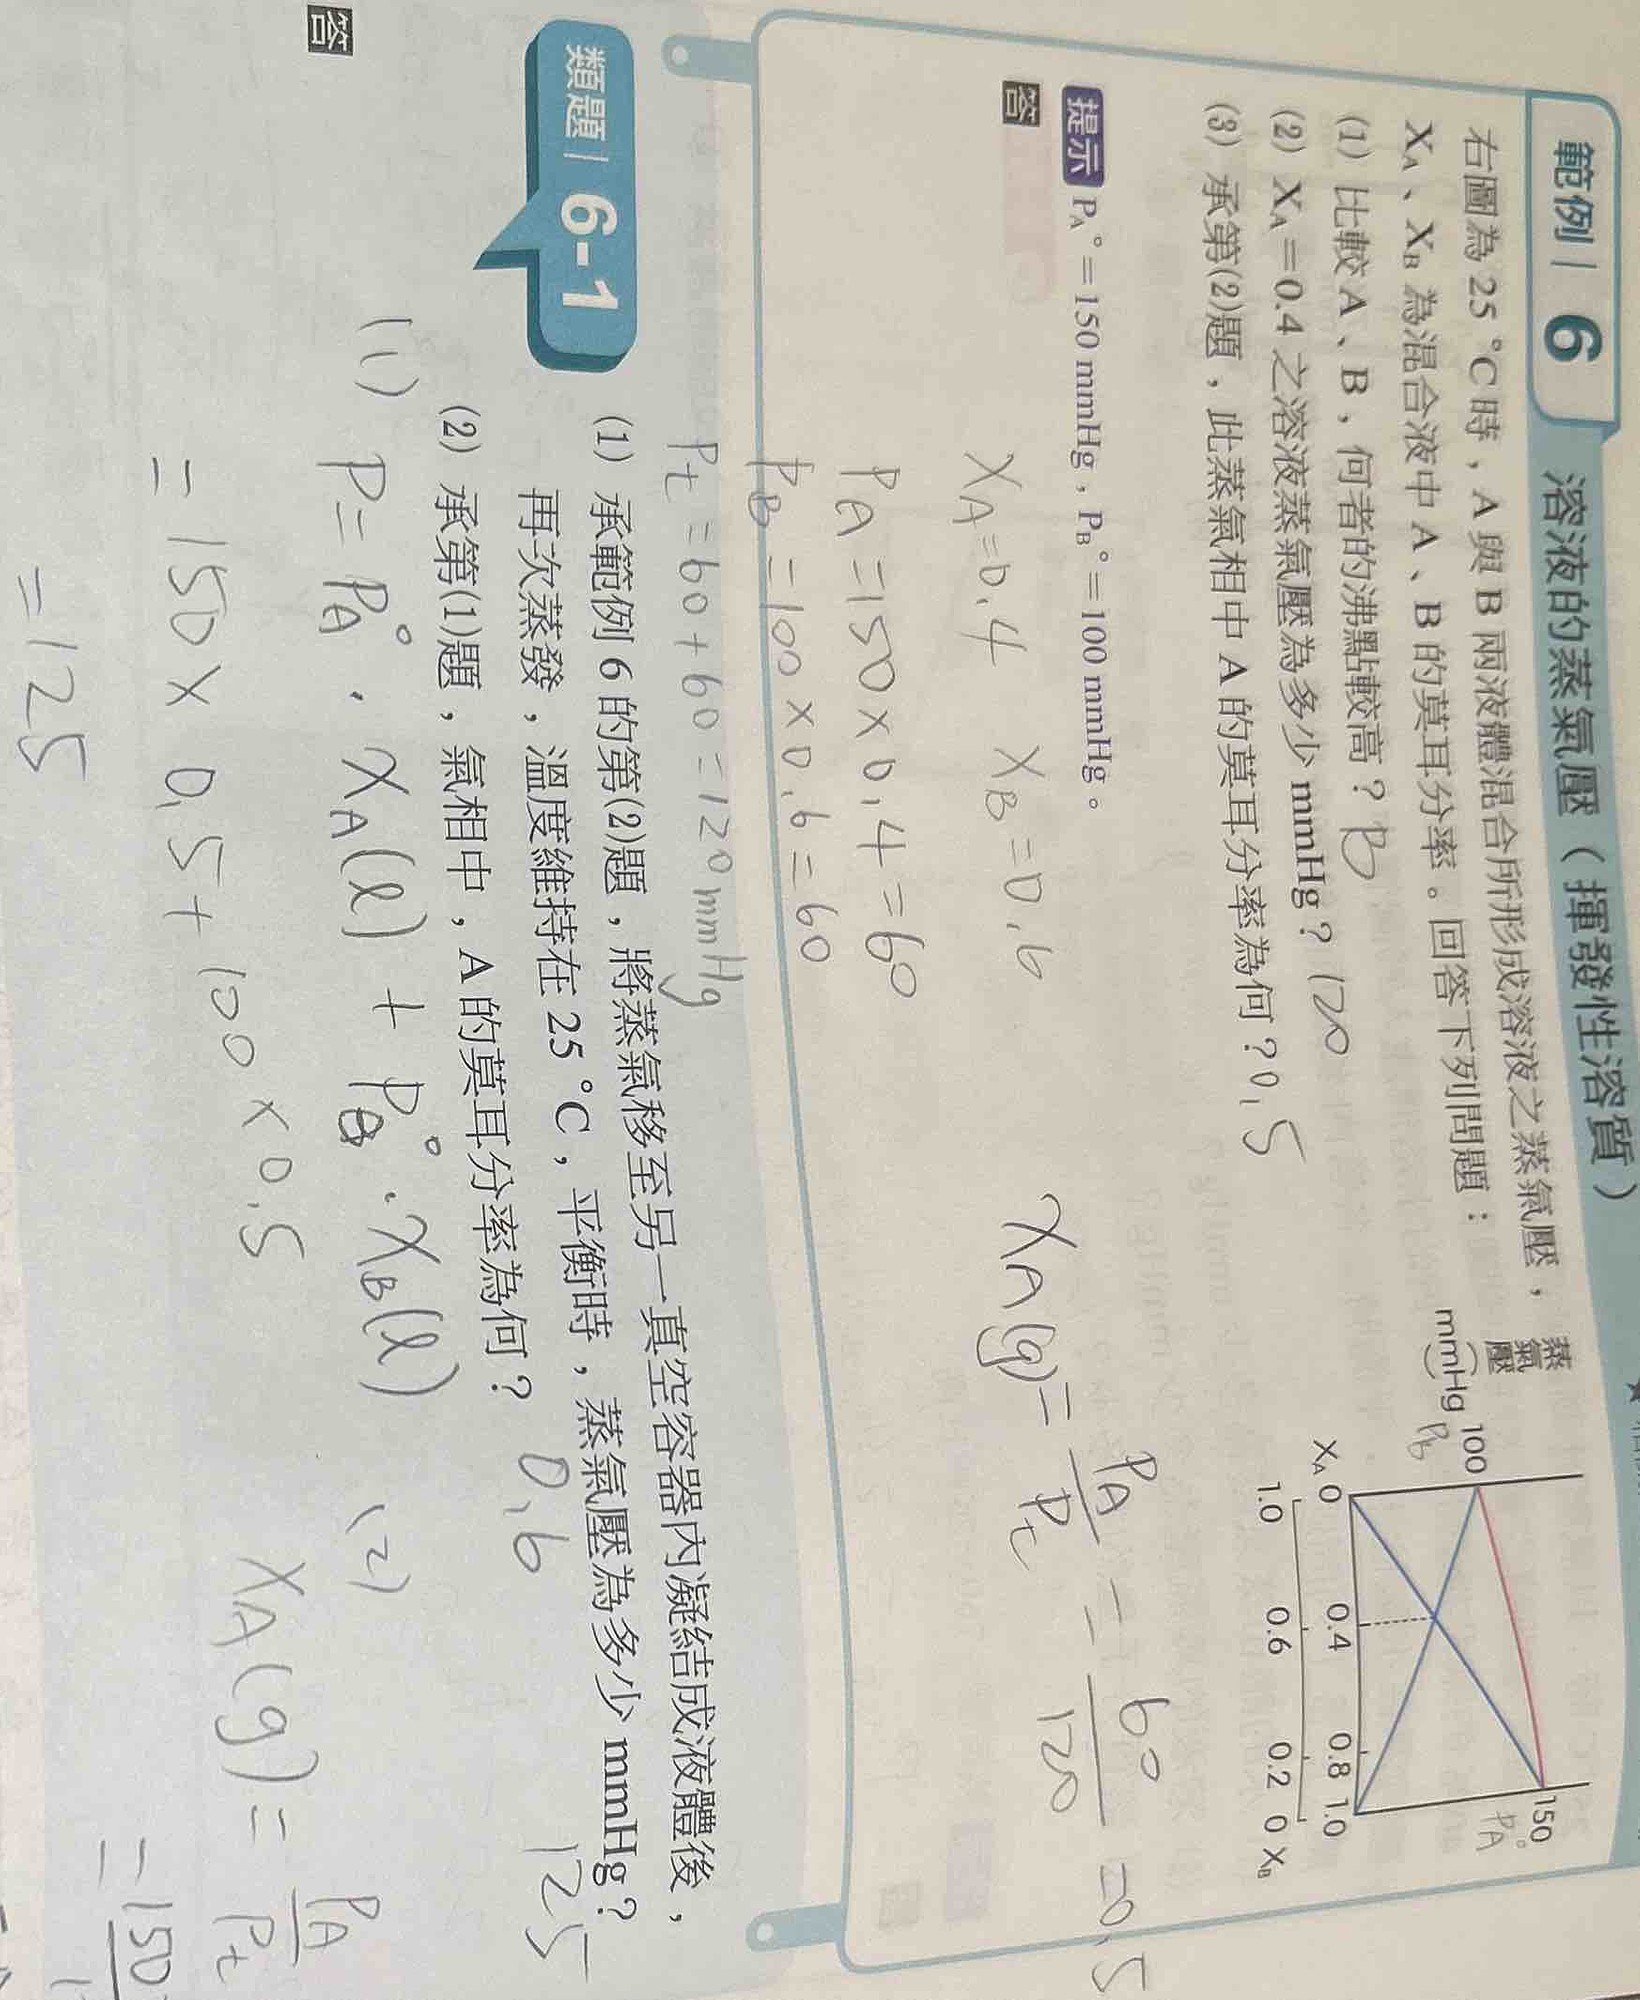 範例 6 溶液的蒸氣壓（揮發性溶質）
右圖為 25 °C時，A 與 B 兩液體混合所形成溶液之蒸氣壓，
XA、XB 為混合液中 A、B 的莫耳分率。回答下列問題：
(1) 比較 A、B，何者的沸點較高？B
(2) XA＝0.4 之溶液蒸氣壓為多少 mmHg？120
(3) 承第(2)題，此蒸氣相中 A 的莫耳分率為何？0.5
蒸氣壓
(mmHg)
100
PB
150
PA°
XA 0 0.4 0.8 1.0
1.0 0.6 0.2 0 XB
提示 PA°＝150 mmHg，PB°＝100 mmHg。
答
XA=0.4 XB=0.6
PA=150×0.4=60
PB=100×0.6=60
Pt=60+60=120mmHg
XA(g)=PA/Pt=60/120=0.5
類題 6-1
(1) 承範例 6 的第(2)題，將蒸氣移至另一真空容器內凝結成液體後，
再次蒸發，溫度維持在 25 °C，平衡時，蒸氣壓為多少 mmHg？125
(2) 承第(1)題，氣相中，A 的莫耳分率為何？0.6
答
(1) P=PA°·XA(l)+PB°·XB(l)
=150×0.5+100×0.5
=125
(2)
XA(g)=PA/Pt
=150